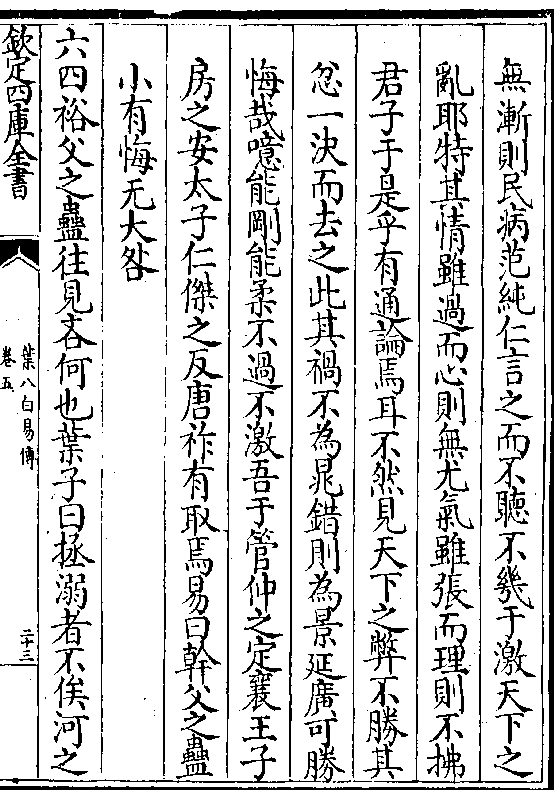 無漸則民病范純仁言之而不聽不幾于激天下之
亂耶特其情雖過而心則無尤氣雖張而理則不拂
君子于是乎有通論焉耳不然見天下之弊不勝其
忿一決而去之此其禍不為晁錯則為景延廣可勝
悔哉噫能剛能柔不過不激吾于管仲之定襄王子
房之安太子仁傑之反唐祚有取焉易曰幹父之蠱
小有悔无大咎
六四裕父之蠱往見吝何也葉子曰拯溺者不俟河之
欽定四庫全書
葉八白易傳
卷五
二十三